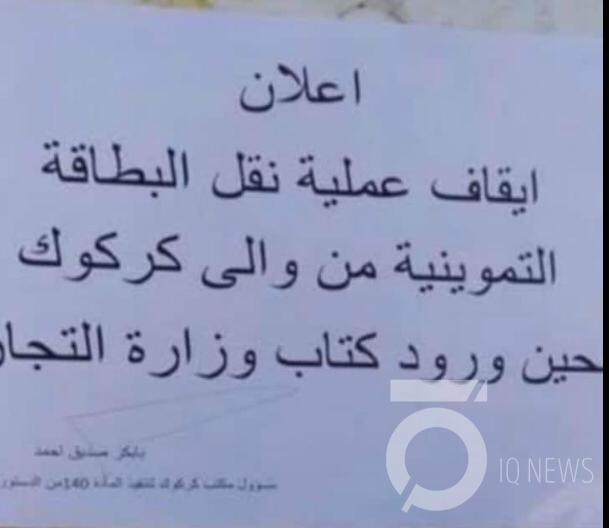 اعلان
ايقاف عملية نقل البطاقة
التموينية من والى كركوك
لحين ورود كتاب وزارة التجار
بابكر صديق احمد
مسؤول مكتب كركوك لتنفيذ المادة 140 من الدستور
IQ NEWS